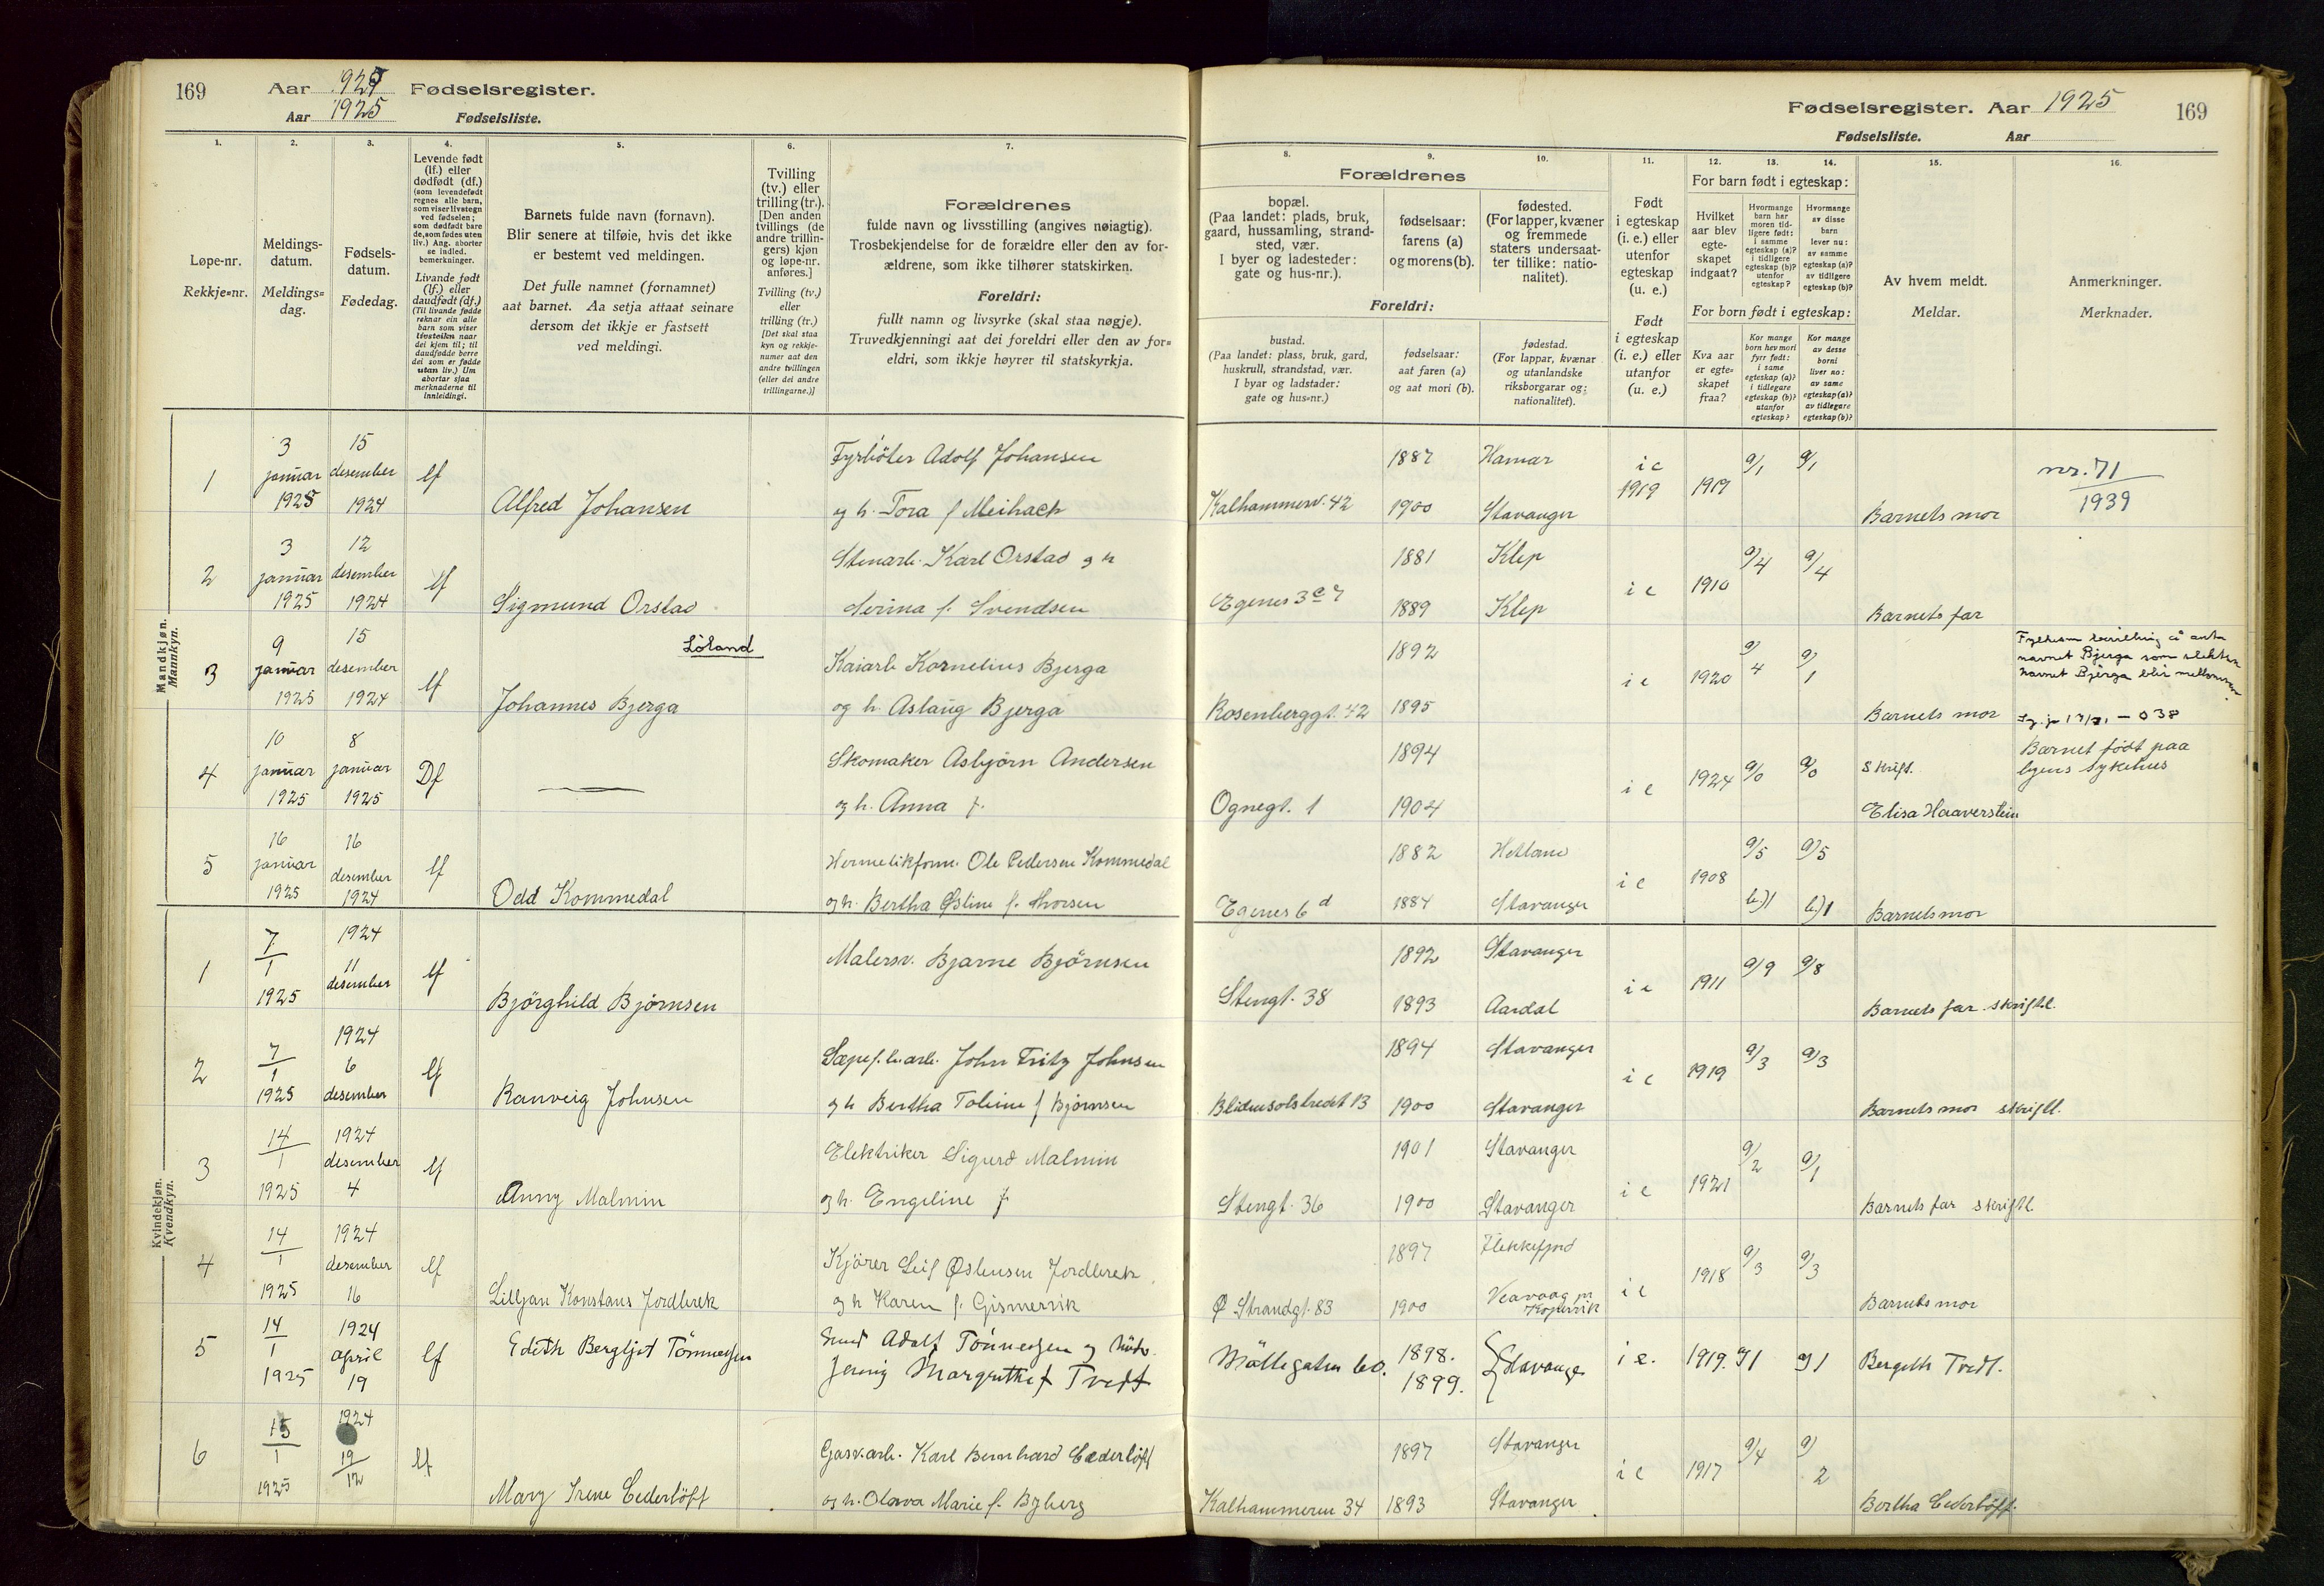 169
Aar 1925 Fødselsregister.
Aar 1925 Fødselsliste.
1.
Løpe-nr.
Rekkje=nr.
2.
Meldings-
datum.
Meldings=
dag.
3.
Fødsels-
datum.
Fødedag.
4.
Levende født
(lf.) eller
dødfødt (df.)
(som levendefødt
regnes alle barn,
som viser livstegn
ved fødselen;
som dødfødt bare
de, som fødes uten
liv.) Ang. aborter
se indled.
bemerkninger.
Livande født
(lf.) eller
daudfødt (df.)
(Til livande fødde
reknar ein alle
barn som viser
livsteikn naar
dei kjem til; til
daudfødde berre
dei som er fødde
utan liv.) Um
abortar sjaa
merknaderne til
innleidingi.
5.
Barnets fulde navn (fornavn).
Blir senere at tilføie, hvis det ikke
er bestemt ved meldingen.
Det fulle namnet (fornamnet)
aat barnet. Aa setja attaat seinare
dersom det ikkje er fastsett
ved meldingi.
6.
Tvilling
(tv.) eller
trilling (tr.).
[Den anden
tvillings (de
andre trillin-
gers) kjøn
og løpe-nr.
anføres.]
Tvilling (tv.)
eller
trilling (tr.)
[Det skal staa
kyn og rekkje-
numer aat den
andre tvillingen
(eller dei andre
trillingarne.)]
7.
Forældrenes
fulde navn og livsstilling (angives nøiagtig).
Trosbekjendelse for de forældre eller den av for-
ældrene, som ikke tilhører statskirken.
Foreldri:
fullt namn og livsyrke (skal staa nøgje).
Truvedkjenningi aat dei foreldri eller den av for=
eldri, som ikkje høyrer til statskyrkja.
Mandkjøn.
Mannkyn.
1
3 januar 1925
15 desember 1924
lf
Alfred Johansen
Fyrbøter Adolf Johansen
og h. Tora f Meibach
2
3 januar 1925
12 desember 1924
lf
Sigmund Orstad
Stenarb. Karl Orstad og h
Serina f. Svendsen
3
9 januar 1925
15 desember 1924
lf
Löland
Johannes Bjerga
Kaiarb Kornelius Bjerga
og h. Aslaug Bjerga
4
10 januar 1925
8 januar 1925
Df
Skomaker Asbjørn Andersen
og h. Anna f.
5
16 januar 1925
16 desember 1924
lf
Odd Kommedal
Hermetikform. Ole Pedersen Kommedal
og h. Bertha Østine f. Thorsen
Kvindekjøn.
Kvendkyn.
1
7/1 1925
1924 11 desember
lf
Bjørghild Bjørnsen
Malersv. Bjarne Bjørnsen
2
7/1 1925
1924 6 desember
lf
Ranveig Johnsen
Sæpef.b.arb. John Fritz Johnsen
og h Bertha Toline f Bjørnsen
3
14/1 1925
1924 desember 4
lf
Anny Malmin
Elektriker Sigurd Malmin
og h. Engeline f
4
14/1 1925
1924 desember 16
lf
Lilljan Konstans Jordbrek
Kjører Leif Østensen Jordbrek
og h Karen f. Gismervik
5
14/1 1925
1924 april 19
lf
Edith Bergljot Tönnesen
Adolf Tönnesen og hustr.
Jenny Margrethe f Tvedt
6
15/1 1925
1924 19/12
lf
Mary Irene Cederlöff
Gasv.arb. Karl Bernhard Cederlöff
og h. Olava Marie f. Byberg
Fødselsregister. Aar 1925
169
Fødselsliste. Aar
8.
Forældrenes
bopæl.
(Paa landet: plads, bruk,
gaard, hussamling, strand-
sted, vær.
I byer og ladesteder:
gate og hus-nr.).
Foreldri:
bustad.
(Paa landet: plass, bruk, gard,
huskrull, strandstad, vær.
I byar og ladstader:
gate og hus=nr.)
9.
fødselsaar:
farens (a)
og morens (b).
fødselsaar:
aat faren (a)
og aat mori (b).
10.
fødested.
(For lapper, kvæner
og fremmede
staters undersaat-
ter tillike: natio-
nalitet).
fødestad.
(For lappar, kvænar
og utanlandske
riksborgarar og:
nationalitet).
11.
Født
i egteskap
(i. e.) eller
utenfor
egteskap
(u. e.)
Født
i egteskap
(i. e.) eller
utanfor
(u. e.)
12.
13.
14.
For barn født i egteskap:
Hvilket
aar blev
egte-
skapet
indgaat?
Hvormange
barn har
moren tid-
ligere født:
i samme
egteskap (a)?
i tidligere
egteskap (b)?
utenfor
egteskap?
Hvormange
av disse
barn
lever nu:
av samme
egteskap (a)?
av tidligere
egteskap (b)?
For born født i egteskap:
Kva aar
er egte=
skapet
fraa?
Kor mange
born hev mori
fyrr født:
i same
egteskap (a)?
i tidlegare
egteskap (b)?
utanfor
egteskap?
Kor mange
av desse
borni
liver no:
av same
egteskap (a)?
av tidlegare
egteskap (b)?
15.
Av hvem meldt.
Meldar.
16.
Anmerkninger.
Merknader.
Kalhammerv. 42
1887 Hamar
1900 Stavanger
i e
1919
1919
a/1 a/1
Barnets mor
nr. 71
1939
Egenes
1881 Klep
1889 Klep
i e
1910
a/4 a/4
Barnets far
Rosenberggt. 42
1892
1895
i e
1920
a/4 a/1
Barnets mor
navnet Bjerga som
navnet Bjerga blir
Ognegt. 1
1894
1904
i e
1924
a/0 a/0
Skriftl.
Elisa Haaverstein
Barnet født paa
byens sykehus
Egenes 6 d
1882 Hetland
1884 Stavanger
i e
1908
a/5 a/5
b)1 b)1
Barnets mor
Stengt. 38
1892 Stavanger
1893 Aardal
i e
1911
a/9 a/8
Barnets far skriftl.
Blidensolstredet 13
1894 Stavanger
1900 Stavanger
i e
1919
a/3 a/3
Barnets mor skriftl.
Stengt. 36
1901 Stavanger
1900 Stavanger
i e
1921
a/2 a/1
Barnets far skriftl.
Ø Strandgt. 83
1897 Flekkefjord
1900 Veavaag pr Kopervik
i e
1918
a/3 a/3
Barnets mor
Möllegaten 60.
1898.
1899.
Stavanger
i e.
1919.
a/1 a/1
Bergith Tvedt.
Kalhammeren 34
1897 Stavanger
1893 Stavanger
i e
1917
a/4 a/2
Bertha Cederlöff.